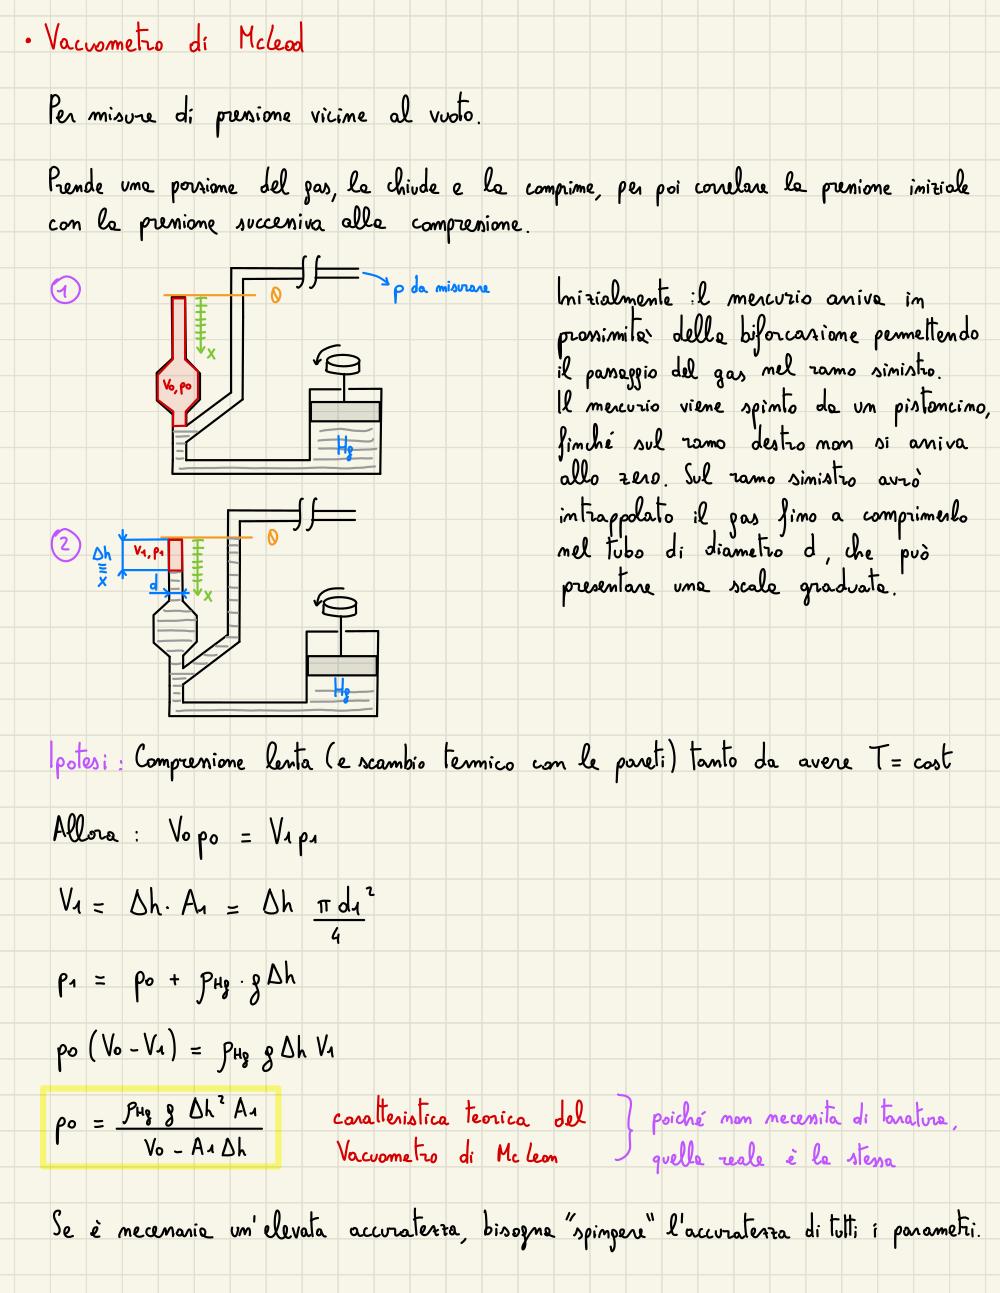 • Vacuometro di McLeod
Per misure di pressione vicine al vuoto.
Prende una porzione del gas, la chiude e la comprime, per poi correlare la pressione iniziale
con la pressione successiva alla compressione.
1
0
p da misurare
x
V0, p0
Hg
Inizialmente il mercurio arriva in
prossimità della biforcazione permettendo
il passaggio del gas nel ramo sinistro.
Il mercurio viene spinto da un pistoncino,
finché sul ramo destro non si arriva
allo zero. Sul ramo sinistro avrò
intrappolato il gas fino a comprimerlo
nel tubo di diametro d, che può
presentare una scala graduata.
2
Δh
=
x
V1, p1
0
d
x
Hg
Ipotesi: Compressione lenta (e scambio termico con le pareti) tanto da avere T = cost
Allora: V0 p0 = V1 p1
V1 = Δh · A1 = Δh π d1² / 4
p1 = p0 + ρHg · g Δh
p0 (V0 - V1) = ρHg g Δh V1
p0 = ρHg g Δh² A1 / V0 - A1 Δh
caratteristica teorica del
Vacuometro di Mc Leon
poiché non necessita di taratura,
quella reale è la stessa
Se è necessaria un'elevata accuratezza, bisogna "spingere" l'accuratezza di tutti i parametri.